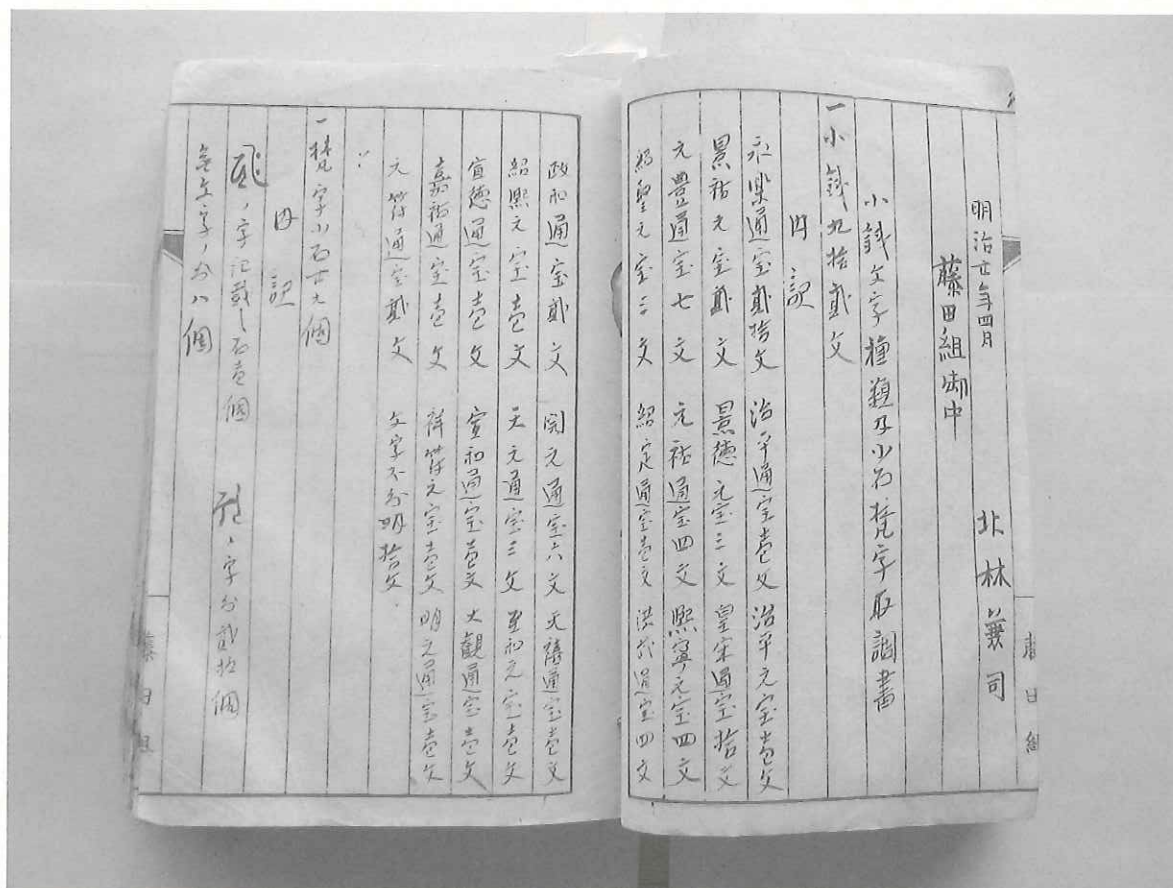 明治廿年四月
北林義司
藤田組御中
小銭文字種類及小石梵字取調書
一小銭九拾貳文
内記
永楽通宝貳拾文 治平通宝壱文 治平元宝壱文
景祐元宝貳文 景徳元宝三文 皇宋通宝拾文
元豊通宝七文 元祐通宝四文 熙寧元宝四文
紹聖元宝三文 紹定通宝壱文 洪武通宝四文
政和通宝貳文 開元通宝六文 天禧通宝壱文
紹熙元宝壱文 天元通宝三文 至和元宝壱文
宣徳通宝壱文 宣和通宝壱文 大観通宝壱文
嘉祐通宝壱文 祥符元宝壱文 明元通宝壱文
元符通宝貳文 文字不分明拾文、
一梵字小石廿九個
内記
ノ字記載ノ石壱個 ノ字分貳拾個
無文字ノ分八個
藤田組
藤田組